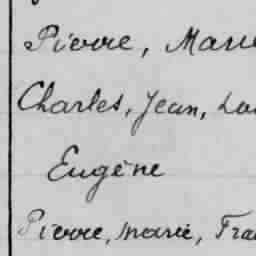 Pierre, Marie
Charles, Jean, Lou
Eugène
Pierre, marie, Fran